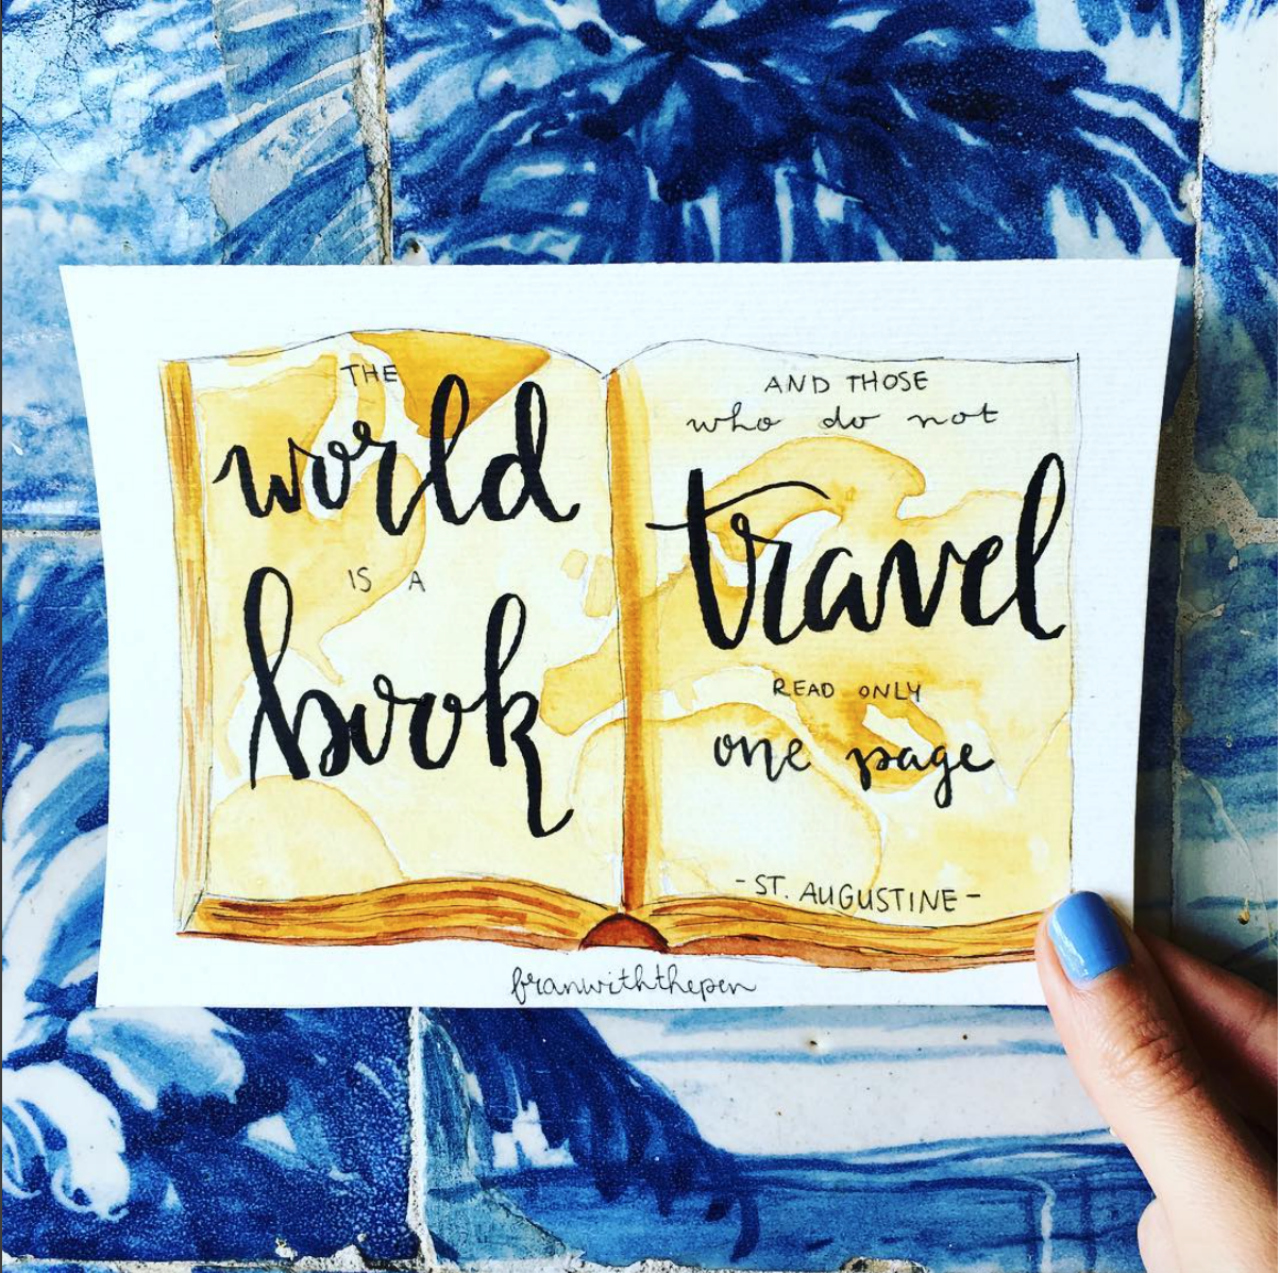 THE
world
IS A
book
AND THOSE
who do not
travel
READ ONLY
one page
-ST. AUGUSTINE-
franwiththepen